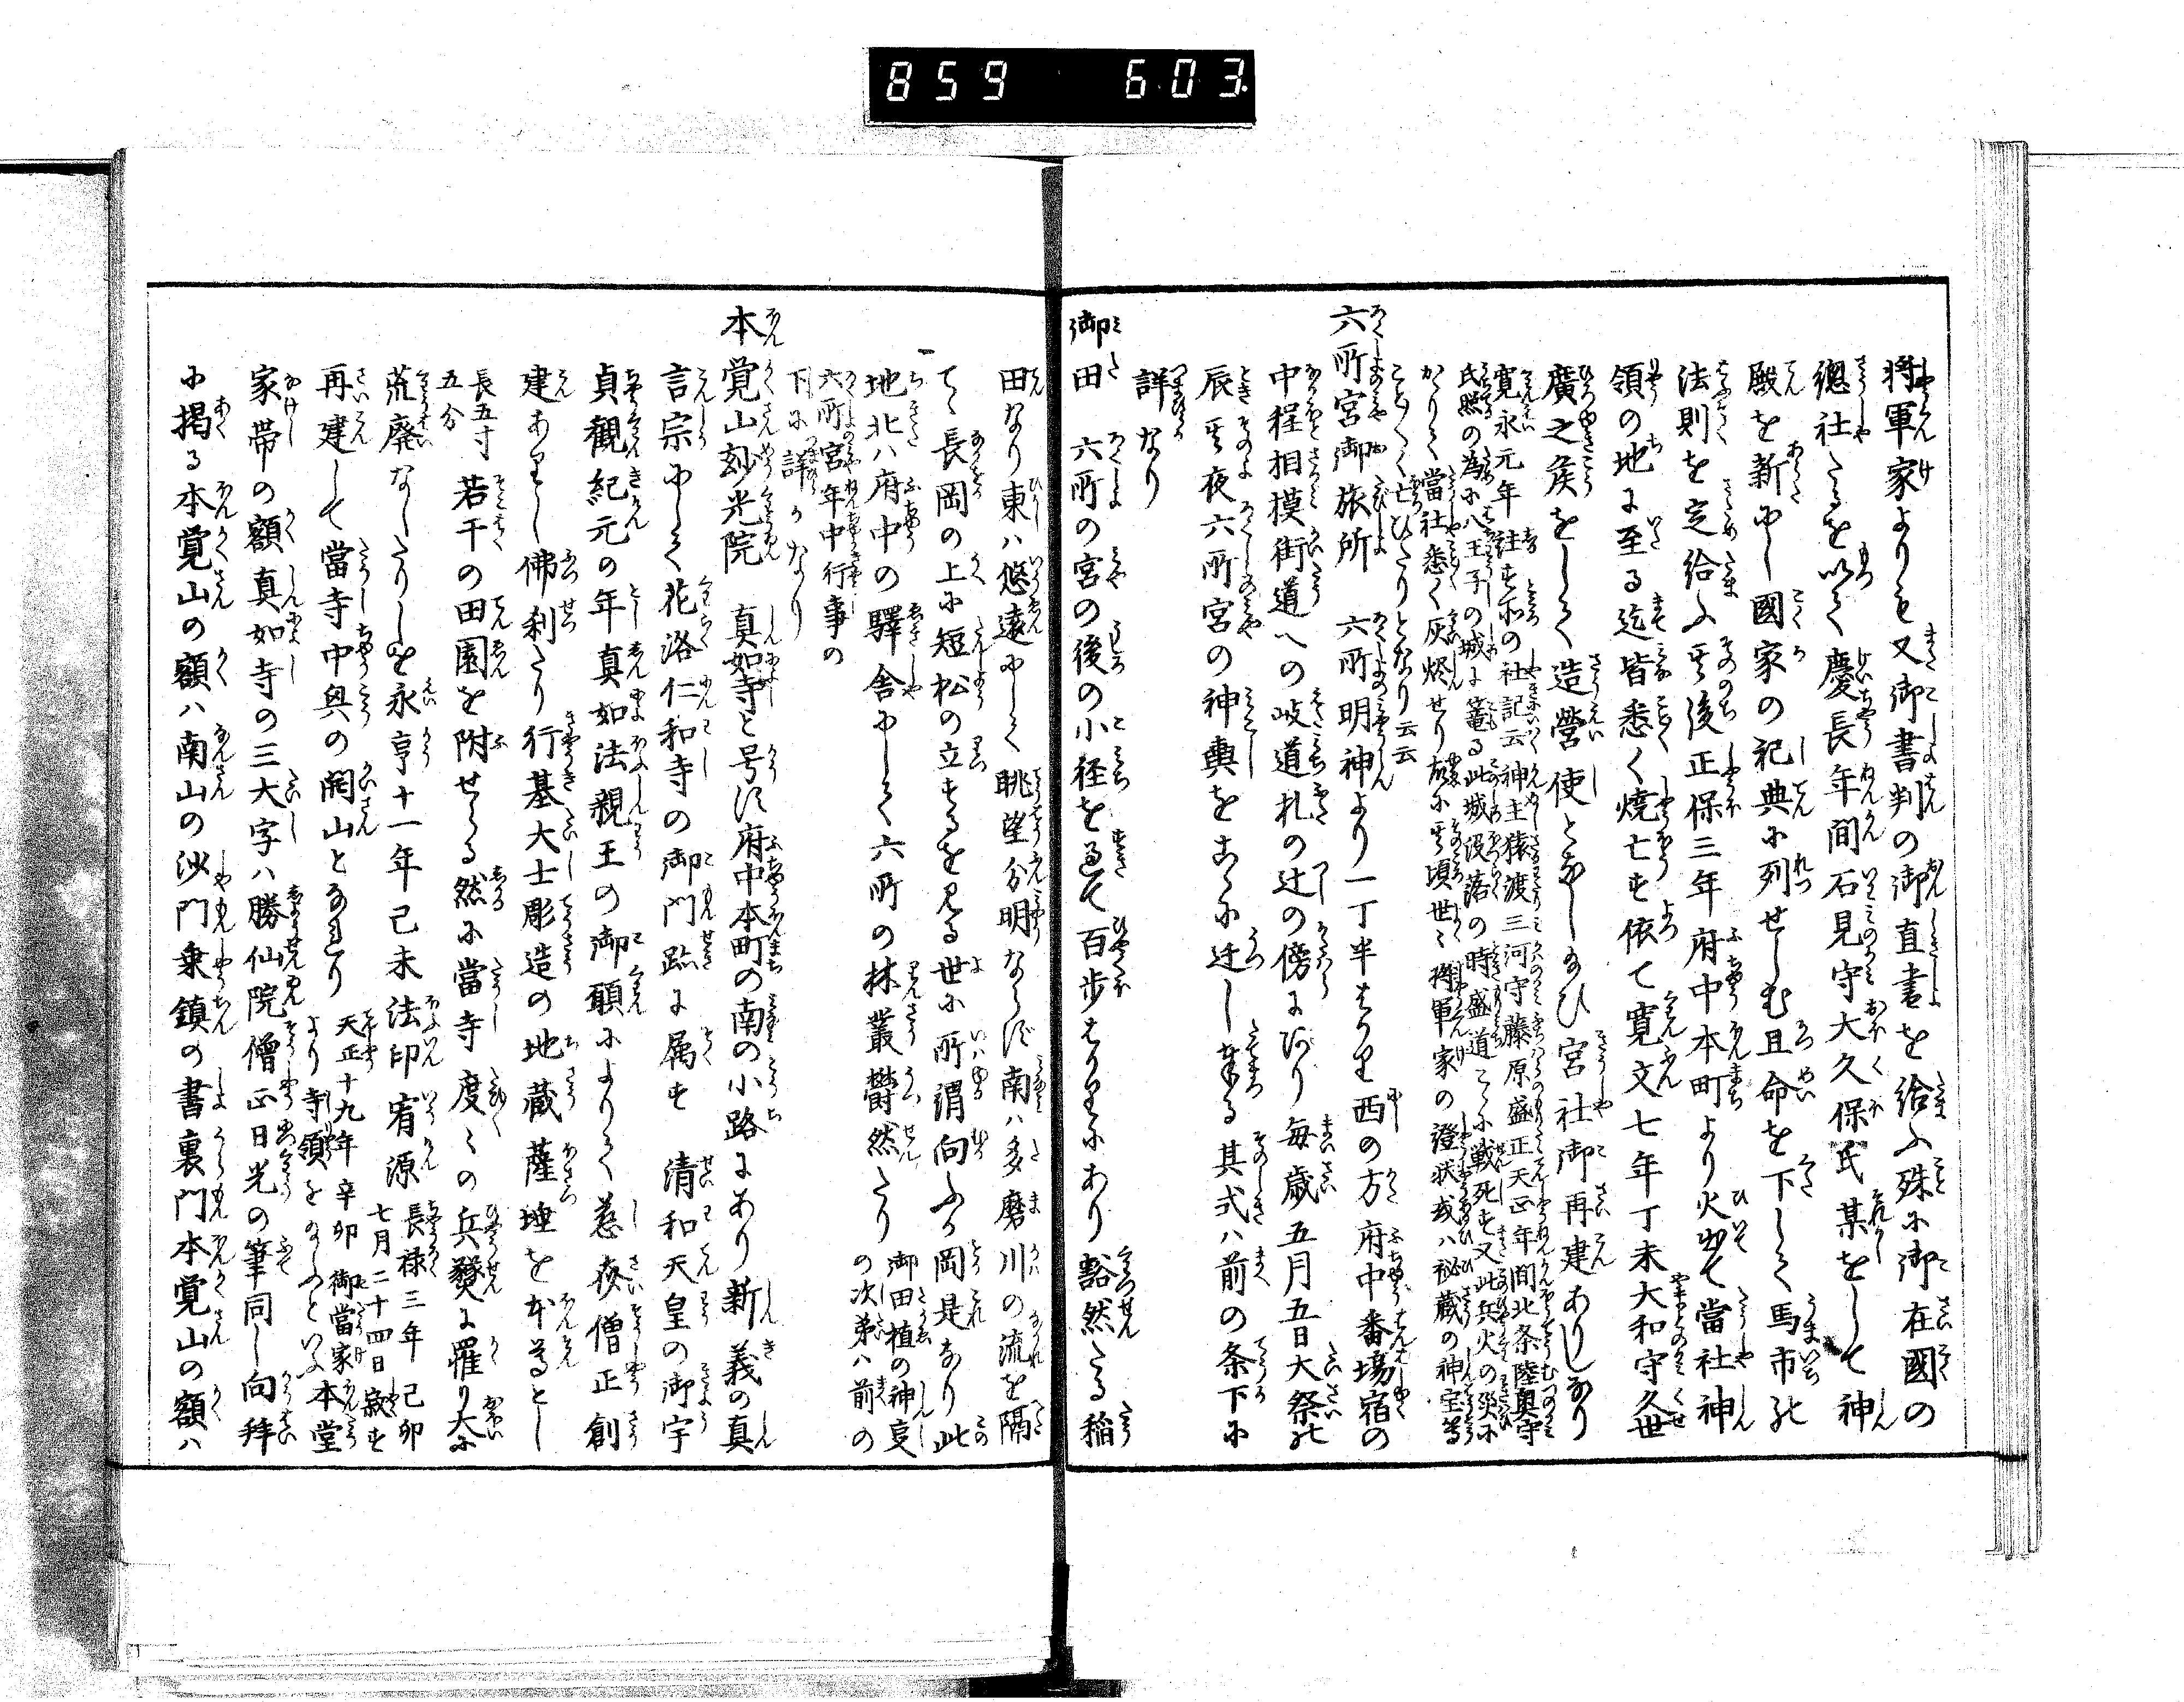 859 603
将軍家よりも又御書判の御直書を給ふ殊に御在國の
總社たるを以て慶長年間石見守大久保氏某をして神
殿を新にし國家の祀典に列せしむ且命を下して馬市の
法則を定給ふ其後正保三年府中本町より火出て當社神
領の地に至る迄皆悉く焼亡す依て寛文七年丁未大和守久世
廣之矦をして造營使となし給ひ宮社御再建ありしなり
寛永元年註する所の社記云神主猿渡三河守藤原盛正天正年間北条陸奥守
氏照の為に八王子の城に篭る此城没落の時盛道こゝに戦死す又此兵火の災に
かゝりて當社悉く灰燼せり故に其頃世々将軍家の證状或ハ秘蔵の神宝等
ことごとく亡ひたりとなり云云
六所宮御旅所 六所明神より一丁半はかり西の方府中番場宿の
中程相摸街道への岐道札の辻の傍にあり毎歳五月五日大祭の
辰其夜六所宮の神輿をこゝに迁し奉る其式ハ前の条下に
詳なり
御田 六所の宮の後の小径を過て百歩はかりにあり豁然たる稲
田なり東ハ悠遠にして眺望分明ならず南ハ多磨川の流を隔
てゝ長岡の上に短松の立るを見る世に所謂向ふの岡是なり此
地北ハ府中の驛舎にして六所の林叢欝然たり 御田植の神㕝の次第ハ前の
六所宮年中行事の
下に詳かなり
本覚山玅光院 真如寺と号す府中本町の南の小路にあり新義の真
言宗にして花洛仁和寺の御門跡に属す 清和天皇の御宇
貞觀紀元の年真如法親王の御願によりて慈済僧正創
建ありし佛刹たり行基大士彫造の地蔵薩埵を本尊とし
長五寸
五分 若干の田園を附せらる然に當寺度々の兵燹に罹り大に
荒廃なしたりしを永享十一年己未法印宥源 長禄三年己卯七月二十四日寂す
再建して當寺中興の開山となれり 天正十九年辛卯御當家より寺領をなしふといふ 本堂
家帯の額真如寺の三大字ハ勝仙院僧正日光の筆同し向拜
に掲る本覚山の額ハ南山の沙門乗鎮の書裏門本覚山の額ハ